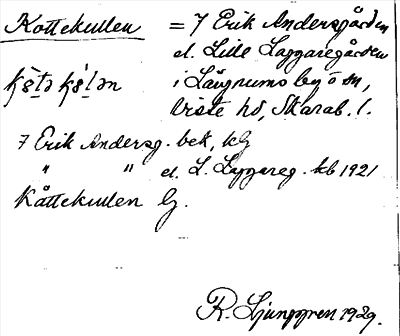 Kottekullen = 7 Erik Andersgården
el. Lille Laggaregården
i Längnums by o sn,
Viste hd, Skarab. l.
7 Erik Andersg. bek, kG
" " el. L. Laggareg. kb 1921
Kåttekullen G.
R. Ljunggren 1929.